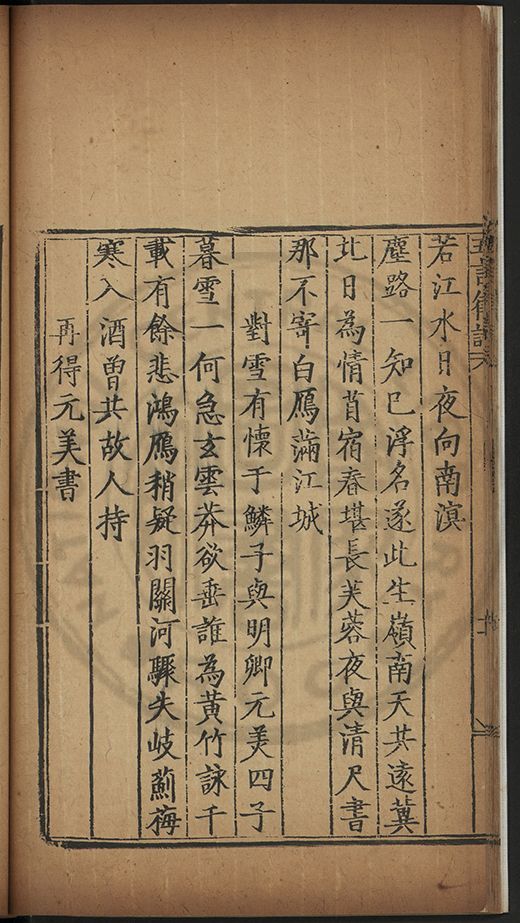 若江水日夜向南溟
塵路一知己浮名遂此生嶺南天共遠冀
北日為情苜宿春堪長芙蓉夜與清尺書
那不寄白鴈滿江城
對雪有懷于鱗子與明卿元美四子
暮雪一何急玄雲莽欲垂誰為黃竹詠千
載有餘悲鴻鴈稍疑羽關河驟失岐薊梅
寒入酒曾共故人持
再得元美書